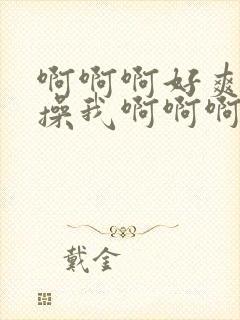 啊啊啊好爽
操我啊啊啊
戴金